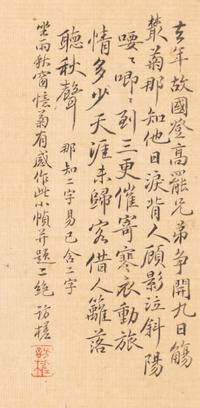 去年故國登高罷兄弟爭開九日觴
叢菊那知他日淚背人顧影泣斜陽
嘤〻唧〻到三更催寄寒衣動旅
情多少天涯未歸客借人籬落
聽秋聲 那知二字易已含二字
坐雨秋窗憶菊有感作此小幀并題二絕 訪槎